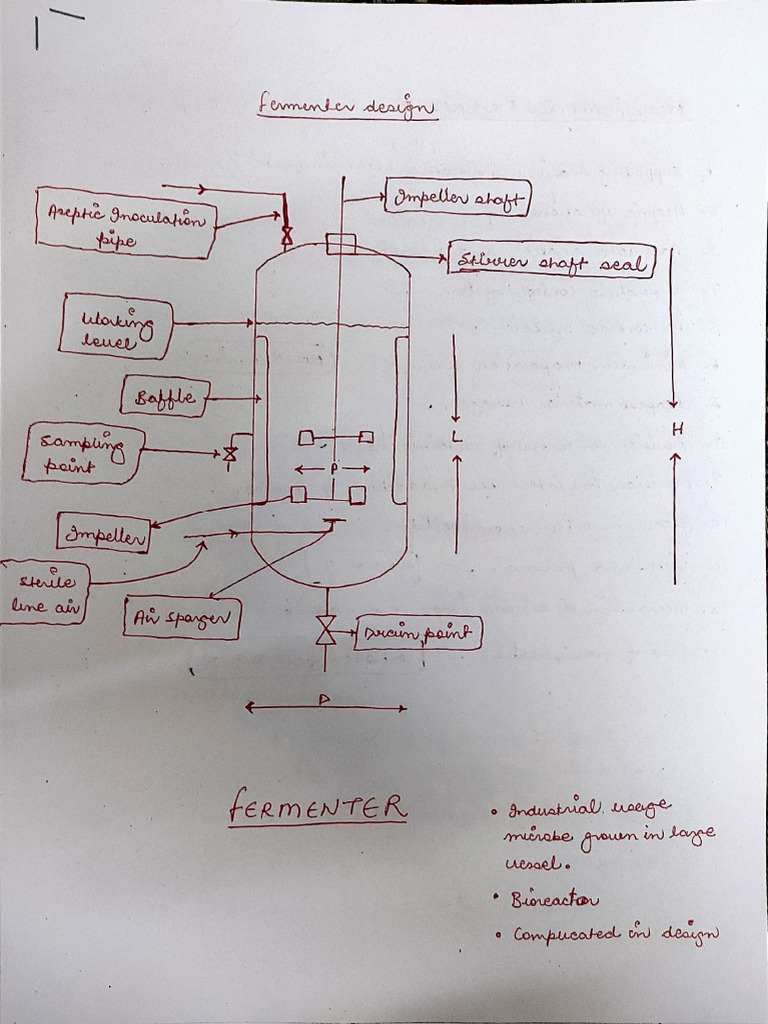 Fermenter design
Impeller shaft
Aseptic Inoculation
pipe
Stirrer shaft seal
Working
level
Baffle
Sampling
point
L
H
P
Impeller
Sterile
line air
Air sparger
Drain point
D
FERMENTER
• Industrial usage
microbe grown in large
vessel.
• Bioreactor
• Complicated in design